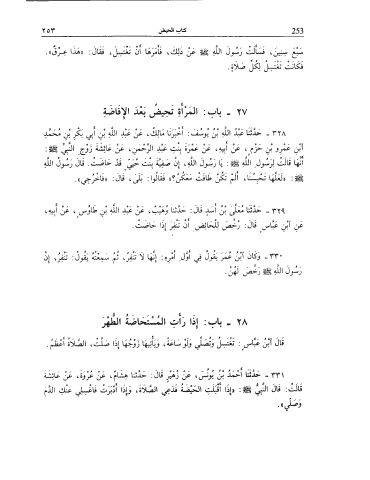 253 كتاب الحيض ٢٥٣
سَبْعَ سِنِينَ، فَسَأَلَتْ رَسُولَ اللَّهِ ﷺ عَنْ ذَلِكَ، فَأَمَرَهَا أَنْ تَغْتَسِلَ، فَقَالَ: «هَذَا عِرْقٌ»،
فَكَانَتْ تَغْتَسِلُ لِكُلِّ صَلَاةٍ.
٢٧ - باب: المَرْأَةِ تَحِيضُ بَعْدَ الإِفَاضَةِ
٣٢٨ - حَدَّثَنَا عَبْدُ اللَّهِ بْنُ يُوسُفَ: أَخْبَرَنَا مَالِكٌ، عَنْ عَبْدِ اللَّهِ بْنِ أَبِي بَكْرِ بْنِ مُحَمَّدِ
ابْنِ عَمْرِو بْنِ حَزْمٍ، عَنْ أَبِيهِ، عَنْ عَمْرَةَ بِنْتِ عَبْدِ الرَّحْمَنِ، عَنْ عَائِشَةَ زَوْجِ النَّبِيِّ ﷺ:
أَنَّهَا قَالَتْ لِرَسُولِ اللَّهِ ﷺ: يَا رَسُولَ اللَّهِ، إِنَّ صَفِيَّةَ بِنْتَ حُيَيٍّ قَدْ حَاضَتْ. قَالَ رَسُولُ اللَّهِ
ﷺ: «لَعَلَّهَا تَحْبِسُنَا، أَلَمْ تَكُنْ طَافَتْ مَعَكُنَّ؟» فَقَالُوا: بَلَى، قَالَ: «فَاخْرُجِي».
٣٢٩ - حَدَّثَنَا مُعَلَّى بْنُ أَسَدٍ قَالَ: حَدَّثَنَا وُهَيْبٌ، عَنْ عَبْدِ اللَّهِ بْنِ طَاوُسٍ، عَنْ أَبِيهِ،
عَنِ ابْنِ عَبَّاسٍ قَالَ: رُخِّصَ لِلْحَائِضِ أَنْ تَنْفِرَ إِذَا حَاضَتْ.
٣٣٠ - وَكَانَ ابْنُ عُمَرَ يَقُولُ فِي أَوَّلِ أَمْرِهِ: إِنَّهَا لَا تَنْفِرُ، ثُمَّ سَمِعْتُهُ يَقُولُ: تَنْفِرُ، إِنَّ
رَسُولَ اللَّهِ ﷺ رَخَّصَ لَهُنَّ.
٢٨ - باب: إِذَا رَأَتِ المُسْتَحَاضَةُ الطُّهْرَ
قَالَ ابْنُ عَبَّاسٍ: تَغْتَسِلُ وَتُصَلِّي وَلَوْ سَاعَةً، وَيَأْتِيهَا زَوْجُهَا إِذَا صَلَّتْ، الصَّلَاةُ أَعْظَمُ.
٣٣١ - حَدَّثَنَا أَحْمَدُ بْنُ يُونُسَ، عَنْ زُهَيْرٍ قَالَ: حَدَّثَنَا هِشَامٌ، عَنْ عُرْوَةَ، عَنْ عَائِشَةَ
قَالَتْ: قَالَ النَّبِيُّ ﷺ: «إِذَا أَقْبَلَتِ الْحَيْضَةُ فَدَعِي الصَّلَاةَ، وَإِذَا أَدْبَرَتْ فَاغْسِلِي عَنْكِ الدَّمَ
وَصَلِّي».